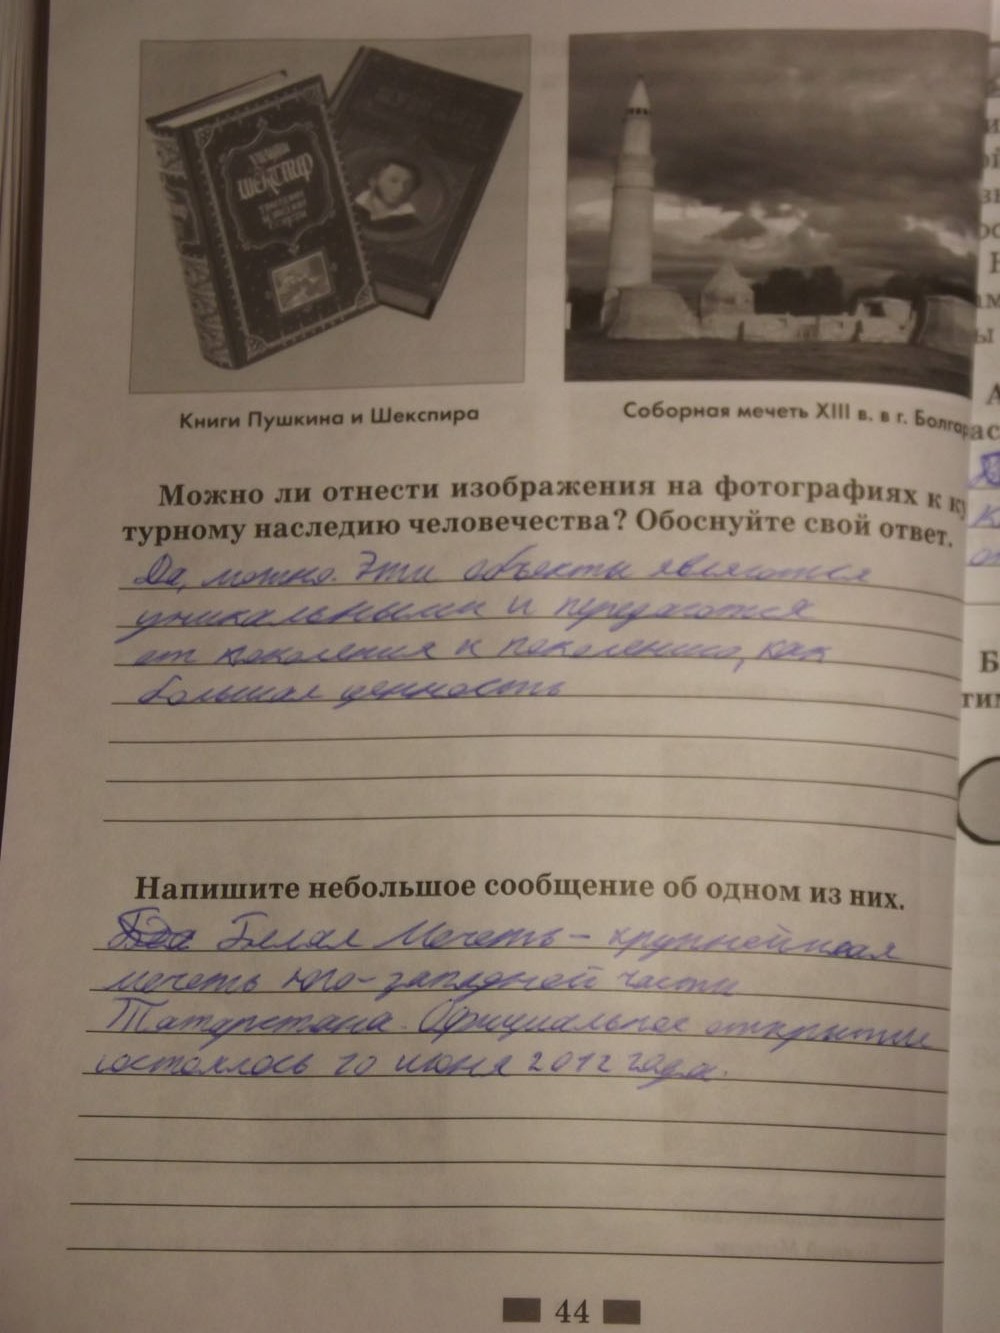 УИЛЬЯМ
ШЕКСПИР
Книги Пушкина и Шекспира
Соборная мечеть XIII в. в г. Болгар
Можно ли отнести изображения на фотографиях к ку
турному наследию человечества? Обоснуйте свой ответ.
Да, можно. Эти объекты являются
уникальными и передаются
от поколения к поколению, как
большая ценность
Напишите небольшое сообщение об одном из них.
Белая Мечеть – крупнейшая
мечеть юго-западной части
Татарстана. Официальное открытие
состоялось 10 июня 2012 года.
44